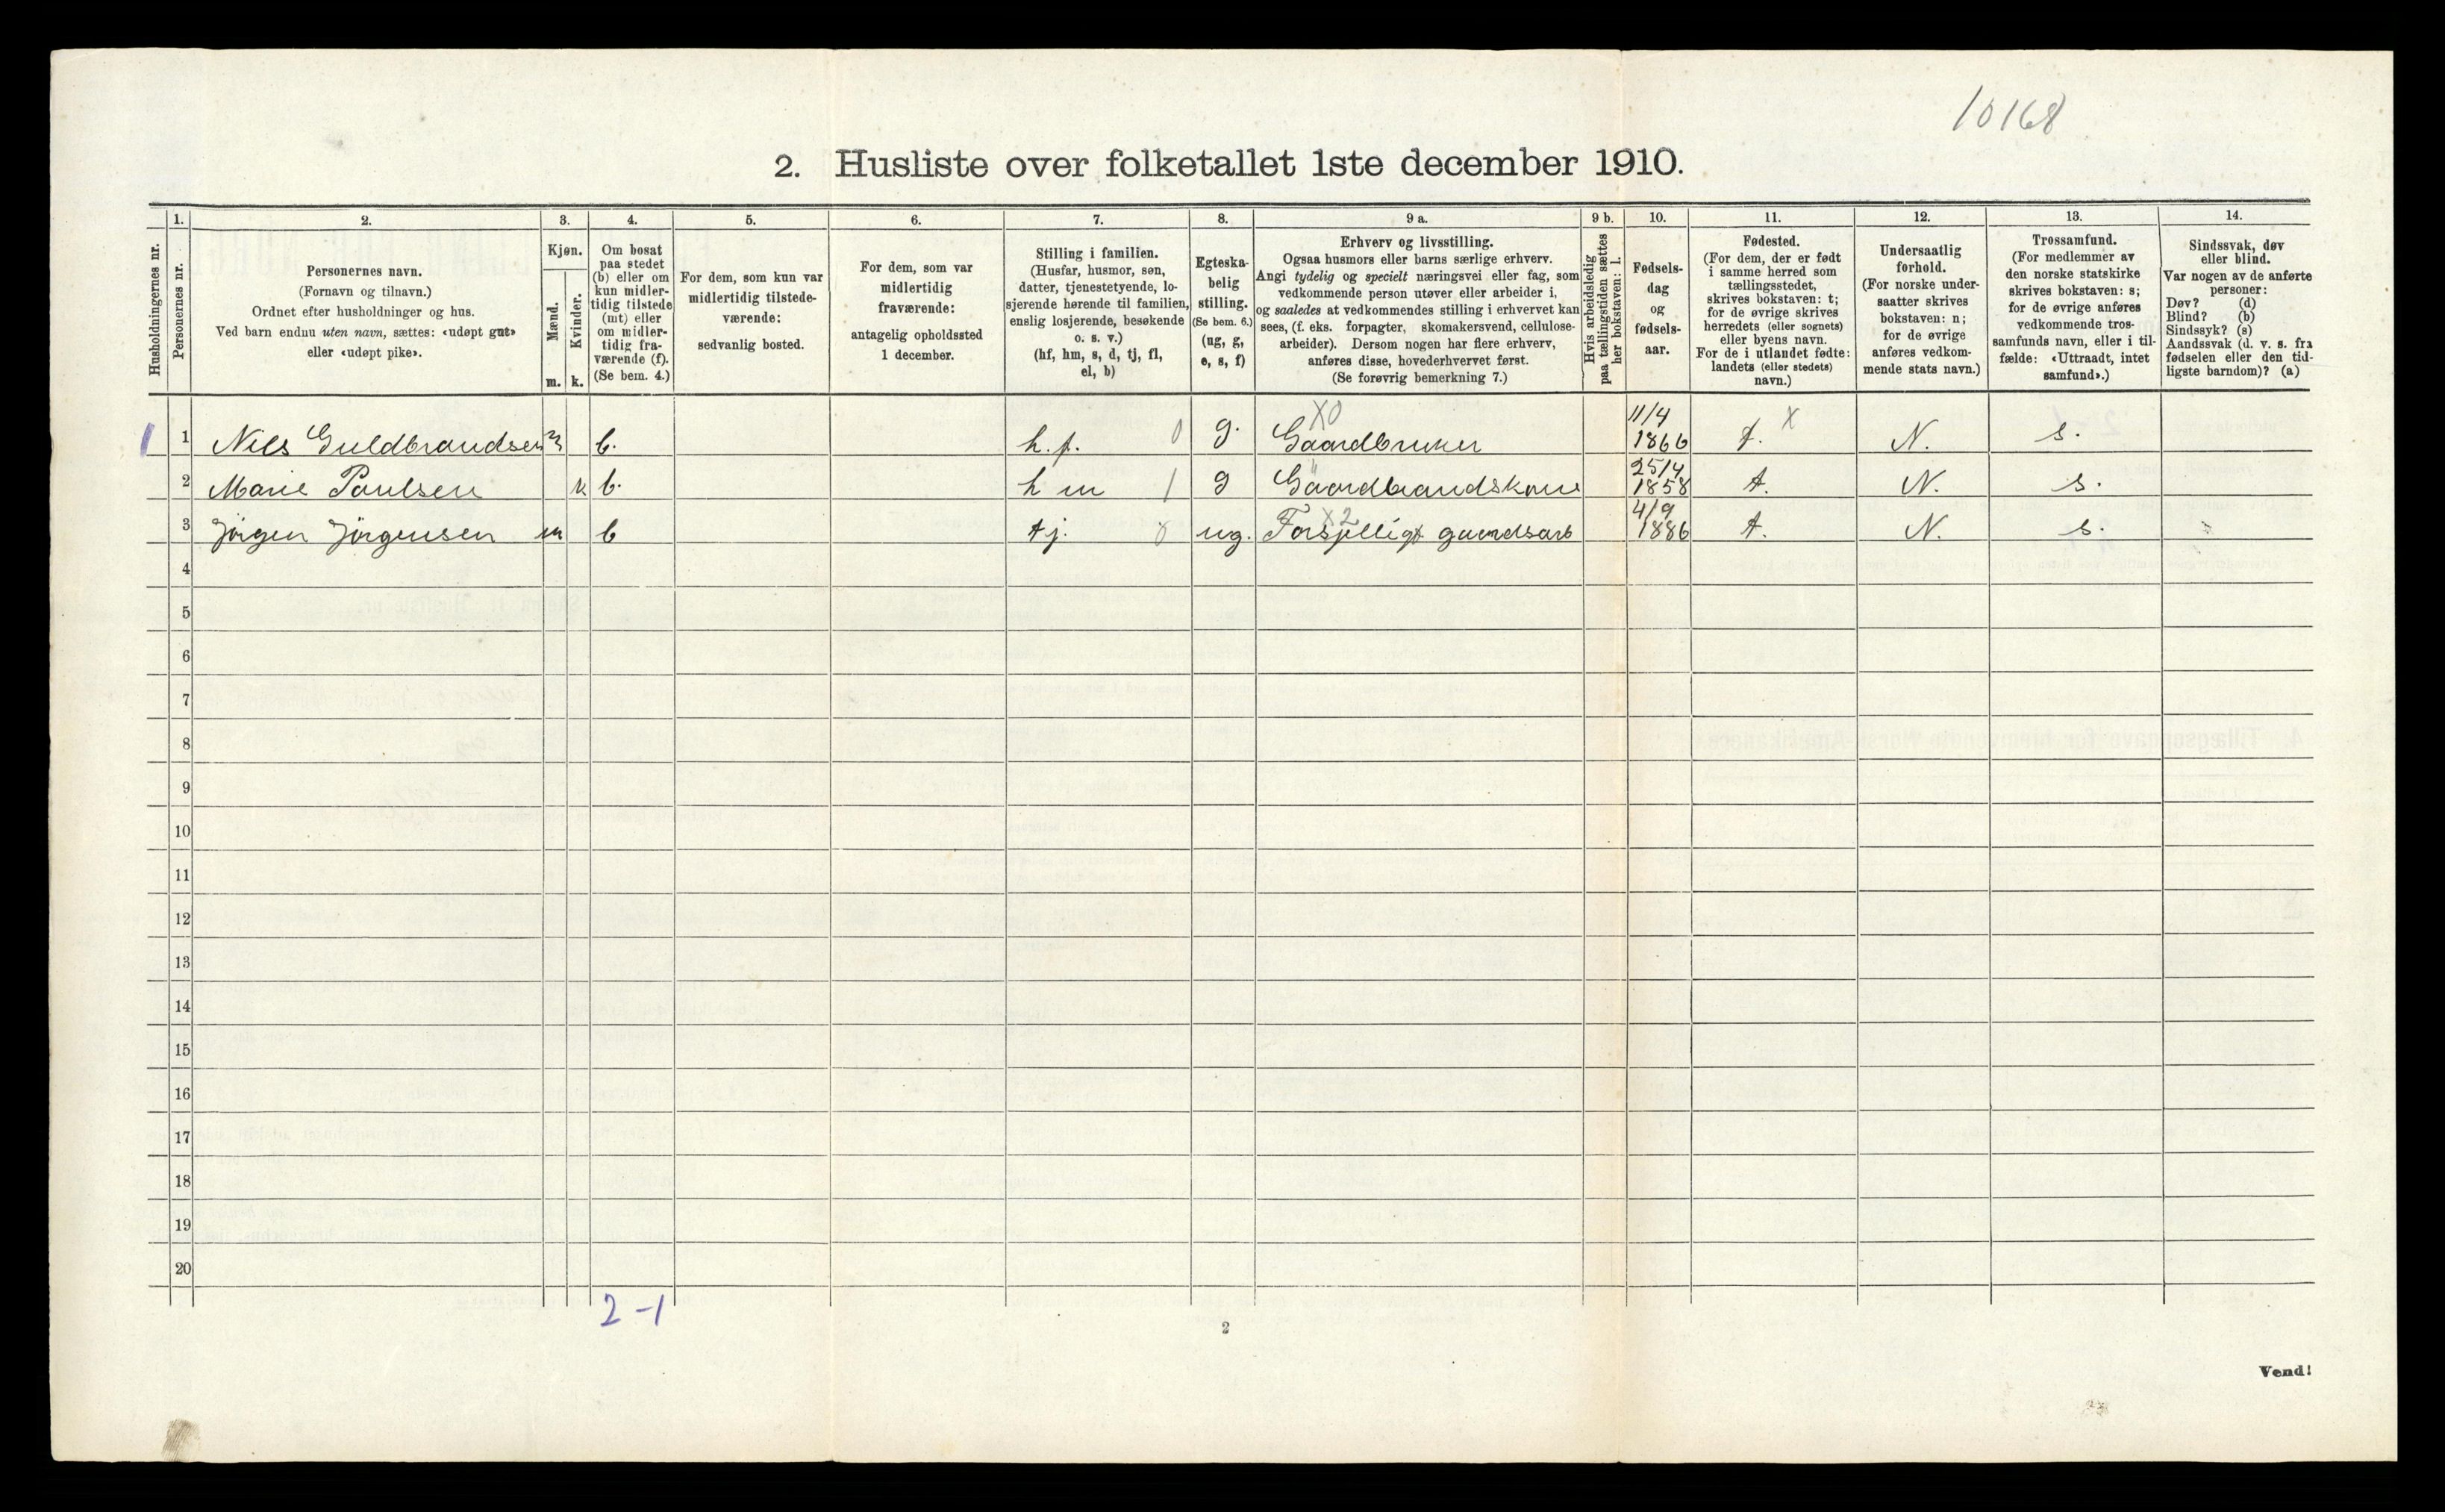 10168
2. Husliste over folketallet 1ste december 1910.
Husholdningernes nr.
1.
Personernes nr.
2.
Personernes navn.
(Fornavn og tilnavn.)
Ordnet efter husholdninger og hus.
Ved barn endnu uten navn, sættes: «udøpt gut»
eller «udøpt pike».
3.
Kjøn.
Mænd.
Kvinder.
m. k.
4.
Om bosat
paa stedet
(b) eller om
kun midler-
tidig tilstede
(mt) eller
om midler-
tidig fra-
værende (f).
(Se bem. 4.)
5.
For dem, som kun var
midlertidig tilstede-
værende:
sedvanlig bosted.
6.
For dem, som var
midlertidig
fraværende:
antagelig opholdssted
1 december.
7.
Stilling i familien.
(Husfar, husmor, søn,
datter, tjenestetyende, lo-
sjerende hørende til familien,
enslig losjerende, besøkende
o. s. v.)
(hf, hm, s, d, tj, fl,
el, b)
8.
Egteska-
belig
stilling.
(Se bem. 6.)
(ug, g,
e, s, f)
9 a.
Erhverv og livsstilling.
Ogsaa husmors eller barns særlige erhverv.
Angi tydelig og specielt næringsvei eller fag, som
vedkommende person utøver eller arbeider i,
og saaledes at vedkommendes stilling i erhvervet kan
sees, (f. eks. forpagter, skomakersvend, cellulose-
arbeider). Dersom nogen har flere erhverv,
anføres disse, hovederhvervet først.
(Se forøvrig bemerkning 7.)
9 b.
Hvis arbeidsledig
paa tællingstiden sættes
her bokstaven: l.
10.
Fødsels-
dag
og
fødsels-
aar.
11.
Fødested.
(For dem, der er født
i samme herred som
tællingsstedet,
skrives bokstaven: t;
for de øvrige skrives
herredets (eller sognets)
eller byens navn.
For de i utlandet fødte:
landets (eller stedets)
navn.)
12.
Undersaatlig
forhold.
(For norske under-
saatter skrives
bokstaven: n;
for de øvrige
anføres vedkom-
mende stats navn.)
13.
Trossamfund.
(For medlemmer av
den norske statskirke
skrives bokstaven: s;
for de øvrige anføres
vedkommende tros-
samfunds navn, eller i til-
fælde: «Uttraadt, intet
samfund».)
14.
Sindssvak, døv
eller blind.
Var nogen av de anførte
personer:
Døv? (d)
Blind? (b)
Sindssyk? (s)
Aandssvak (d. v. s. fra
fødselen eller den tid-
ligste barndom)? (a)
1 1 Nils Guldbrandsen m b. h.f. 0 g. X0 Gaardbruker 11/4 1866 t. X N. s.
2 Marie Paulsen k b. h m 1 g 25/4 1858 t. N. s.
3 Jörgen Jörgensen m b tj. ug. X2 4/9 1886 t. N. s.
4
5
6
7
8
9
10
11
12
13
14
15
16
17
18
19
20
2-1
2
Vend!